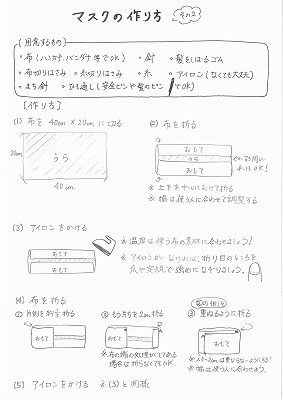 マスクの作り方 その2
[用意するもの]
・布(ハンカチ、バンダナ等でOK) ・針 ・髪をしばるゴム
・布切りはさみ ・糸切りはさみ ・糸 ・アイロン(なくても大丈夫)
・まち針 ・ひも通し(安全ピンや髪のピンでOK)
[作り方]
(1) 布を 40cm × 20cm に切る
(2) 布を折る
20cm
うら
40cm
おもて
うら
おもて
※上下を中心に向けて折る
※幅は使う人に合わせて調整する
(3) アイロンをかける
おもて
おもて
※温度は使う布の素材に合わせましょう!
※アイロンがなければ、折り目のところを
爪や定規で強めになぞりましょう。
(4) 布を折る
① 片側を約
② もう片方を2cm折る
③ 重ねるように折る
おもて
おもて
おもて
※布の端の処理がしてある
場合は折らなくてもOK
※幅は使う人に合わせる。
(5) アイロンをかける ※(3)と同様